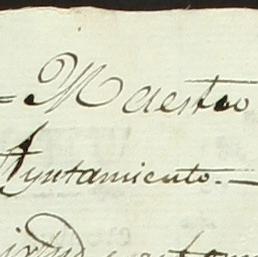 = Maestro
Ayuntamiento. —